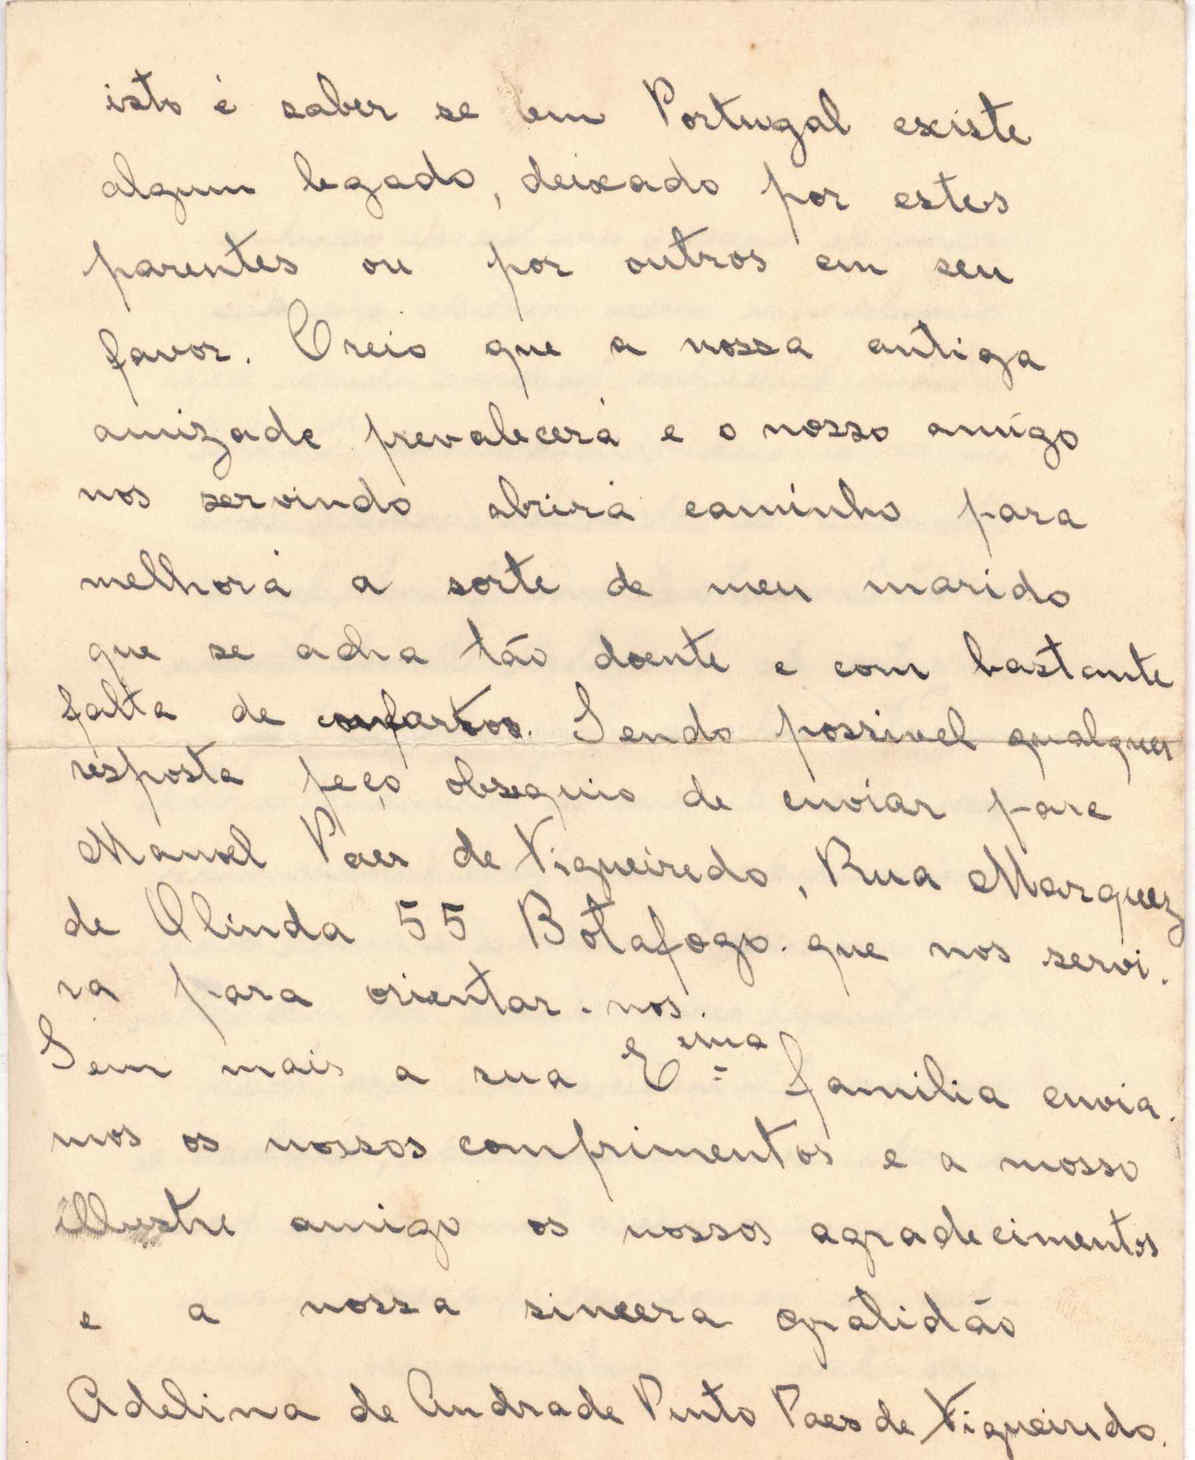 isto é saber se em Portugal existe
algum legado, deixado por estes
parentes ou por outros em seu
favor. Creio que a nossa antiga
amizade prevalecerá e o nosso amigo
nos servindo abrirá caminho para
melhorá a sorte de meu marido
que se acha tão doente e com bastante
falta de confortos. Sendo possivel qualquer
resposta peço obsequio de enviar para
Manoel Paes de Figueiredo, Rua Marquez
de Olinda 55 Botafogo. que nos servi.
ra para orientar-nos.
Sem mais a sua Ema familia envia.
mos os nossos comprimentos e a nosso
illustre amigo os nossos agradecimentos
e a nossa sincera gratidão
Adelina de Andrade Pinto Paes de Figueiredo.